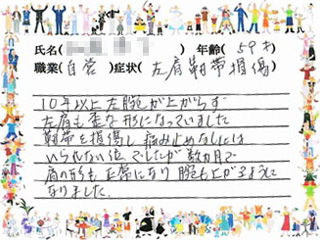 氏名( ) 年齢(59才)
職業(自営)症状(左肩靭帯損傷)
10年以上左腕が上がらず
左肩も歪な形になっていました
靭帯を損傷し痛み止めなしには
いられない位でしたが数カ月で
肩の形も正常になり腕も上がるように
なりました。